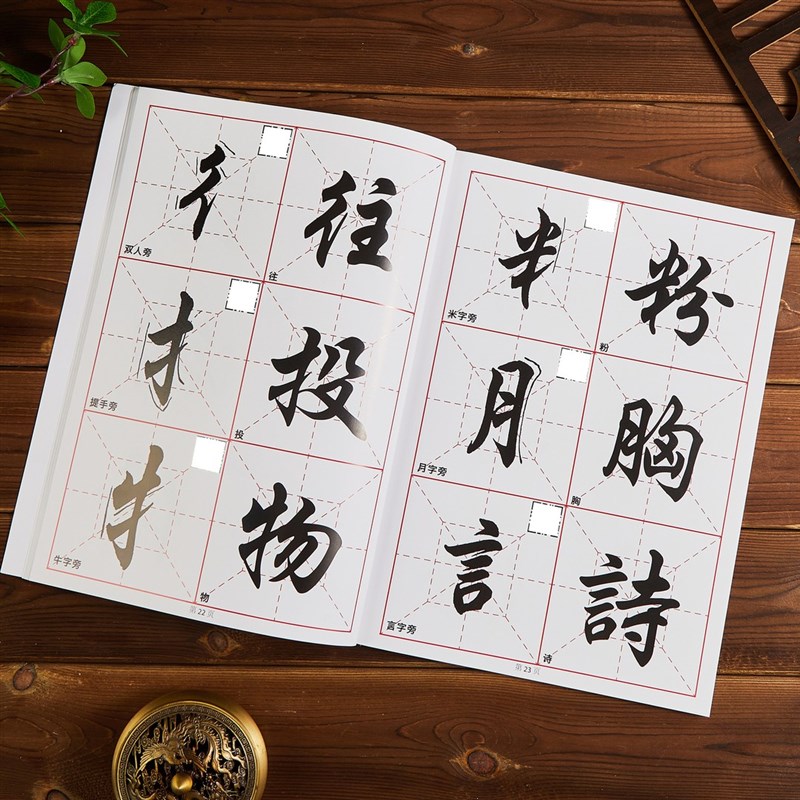 彳 往
双人旁 往
扌 投
提手旁 投
牜 物
牛字旁 物
第 22 页
米 粉
米字旁 粉
月 胸
月字旁 胸
言 詩
言字旁 诗
第 23 页